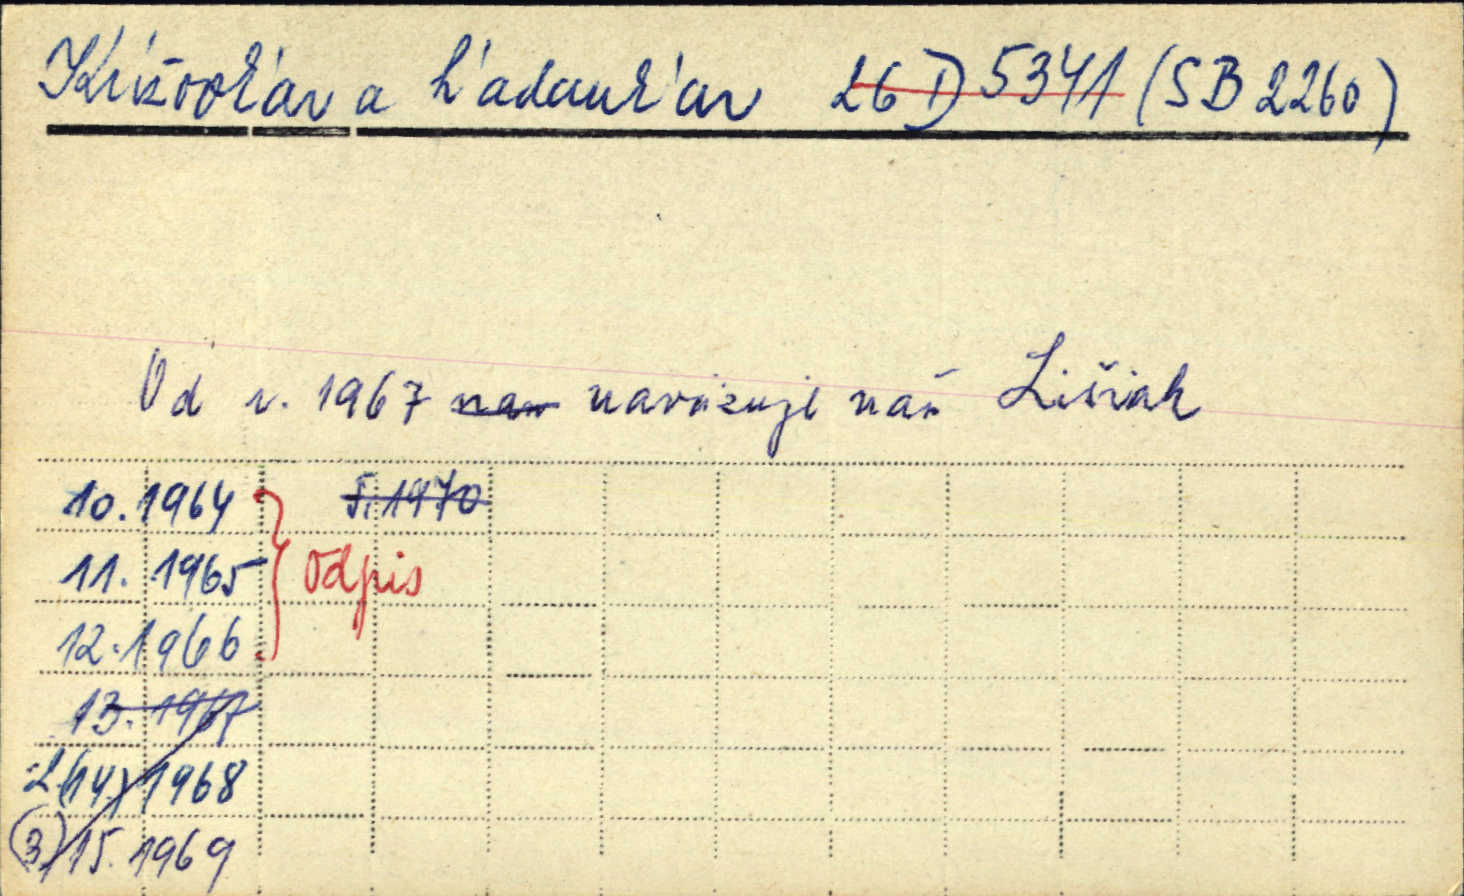 Krížovkár a hádankár 26 D 5341 (SB 2260)
Od r. 1967 navazuje náš Lišiak
10. 1964 5. 1970
11. 1965 Odpis
12. 1966
13. 1967
2(14) 1968
(3) 15. 1969